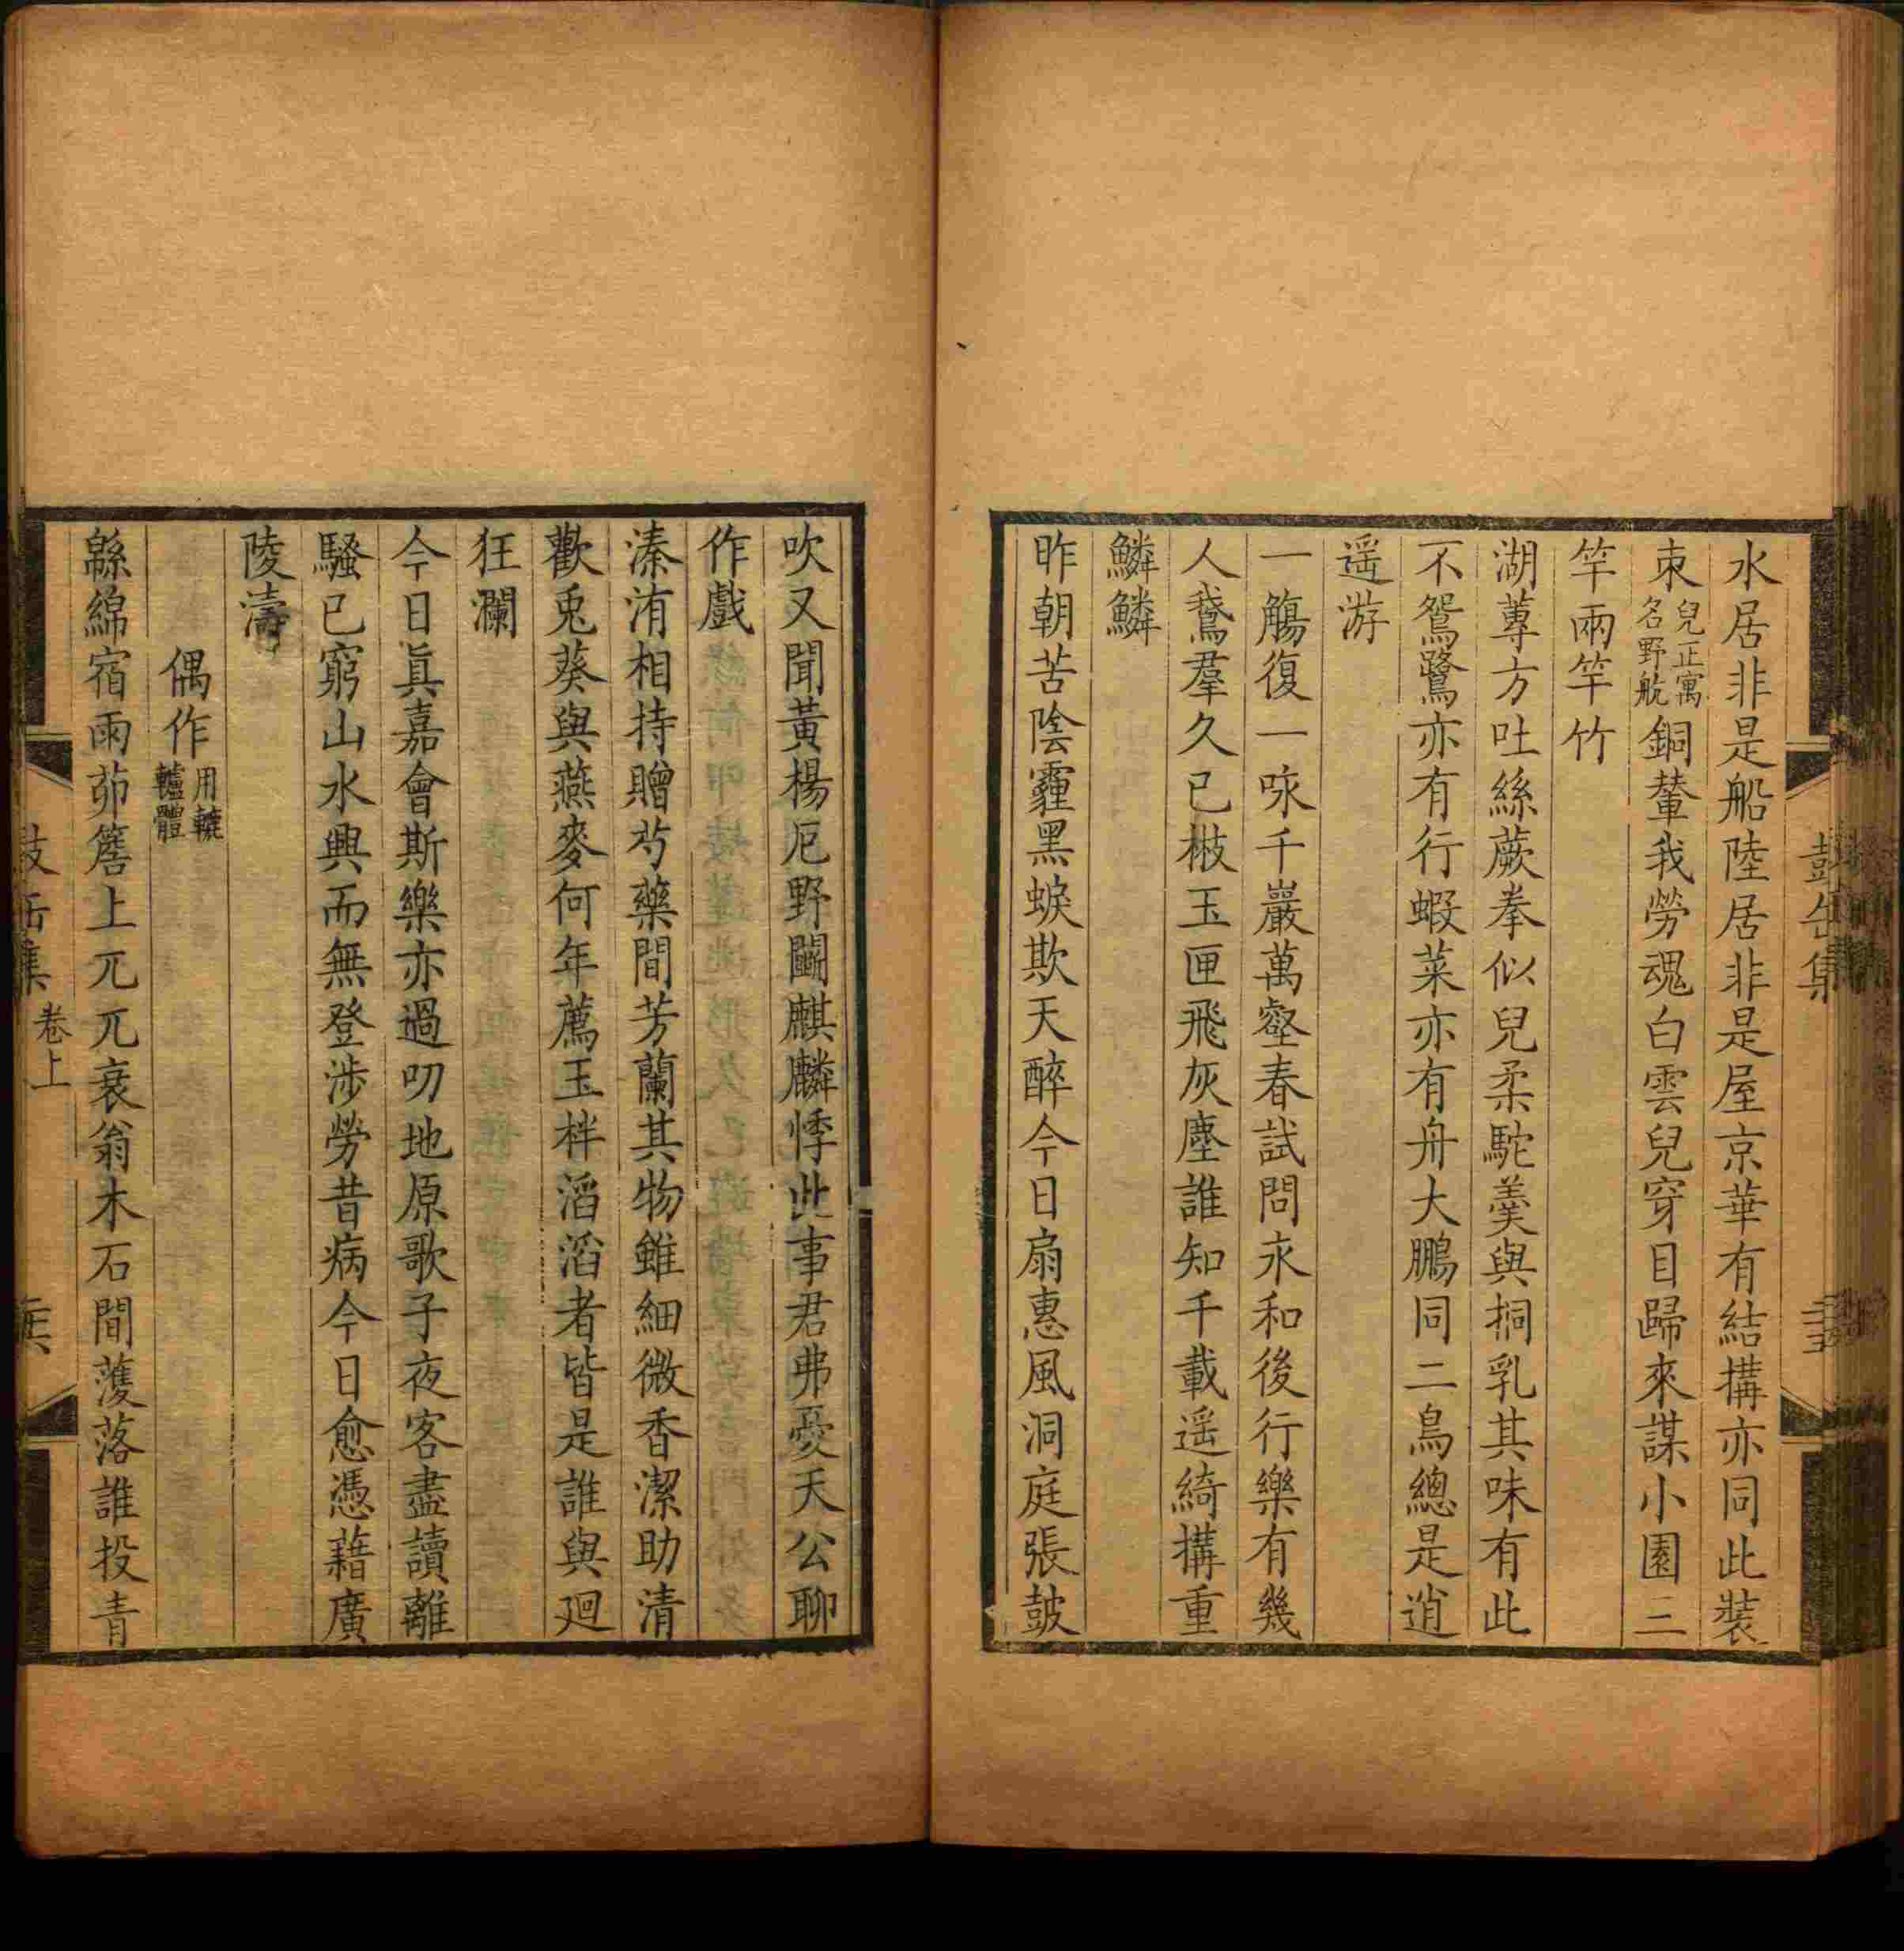 鼓缶集
水居非是船陸居非是屋京華有結構亦同此裝
朿兒正寓名野航銅輦我勞魂白雲兒穿目歸來謀小園三
竿兩竿竹
湖蓴方吐絲蕨拳似兒柔駝羹與挏乳其味有此
不鴛鷺亦有行蝦菜亦有舟大鵬同二鳥總是逍
遥游
一觴復一咏千巖萬壑春試問永和後行樂有幾
人鵞羣久已㭰玉匣飛灰塵誰知千載遥綺構重
鱗鱗
昨朝苦陰霾黑蜧欺天醉今日扇惠風洞庭張皷
吹又聞黃楊厄野鬭麒麟悸此事君弗憂天公聊
作戲
溱洧相持贈芍藥間芳蘭其物雖細微香潔助清
歡兎葵與燕麥何年薦玉柈滔滔者皆是誰與廻
狂瀾
今日眞嘉會斯樂亦過叨地原歌子夜客盡讀離
騷已窮山水興而無登涉勞昔病今日愈憑藉廣
陵濤
偶作用轆轤體
緜綿宿雨茆簷上兀兀衰翁木石間濩落誰投青
鼓缶集 卷上